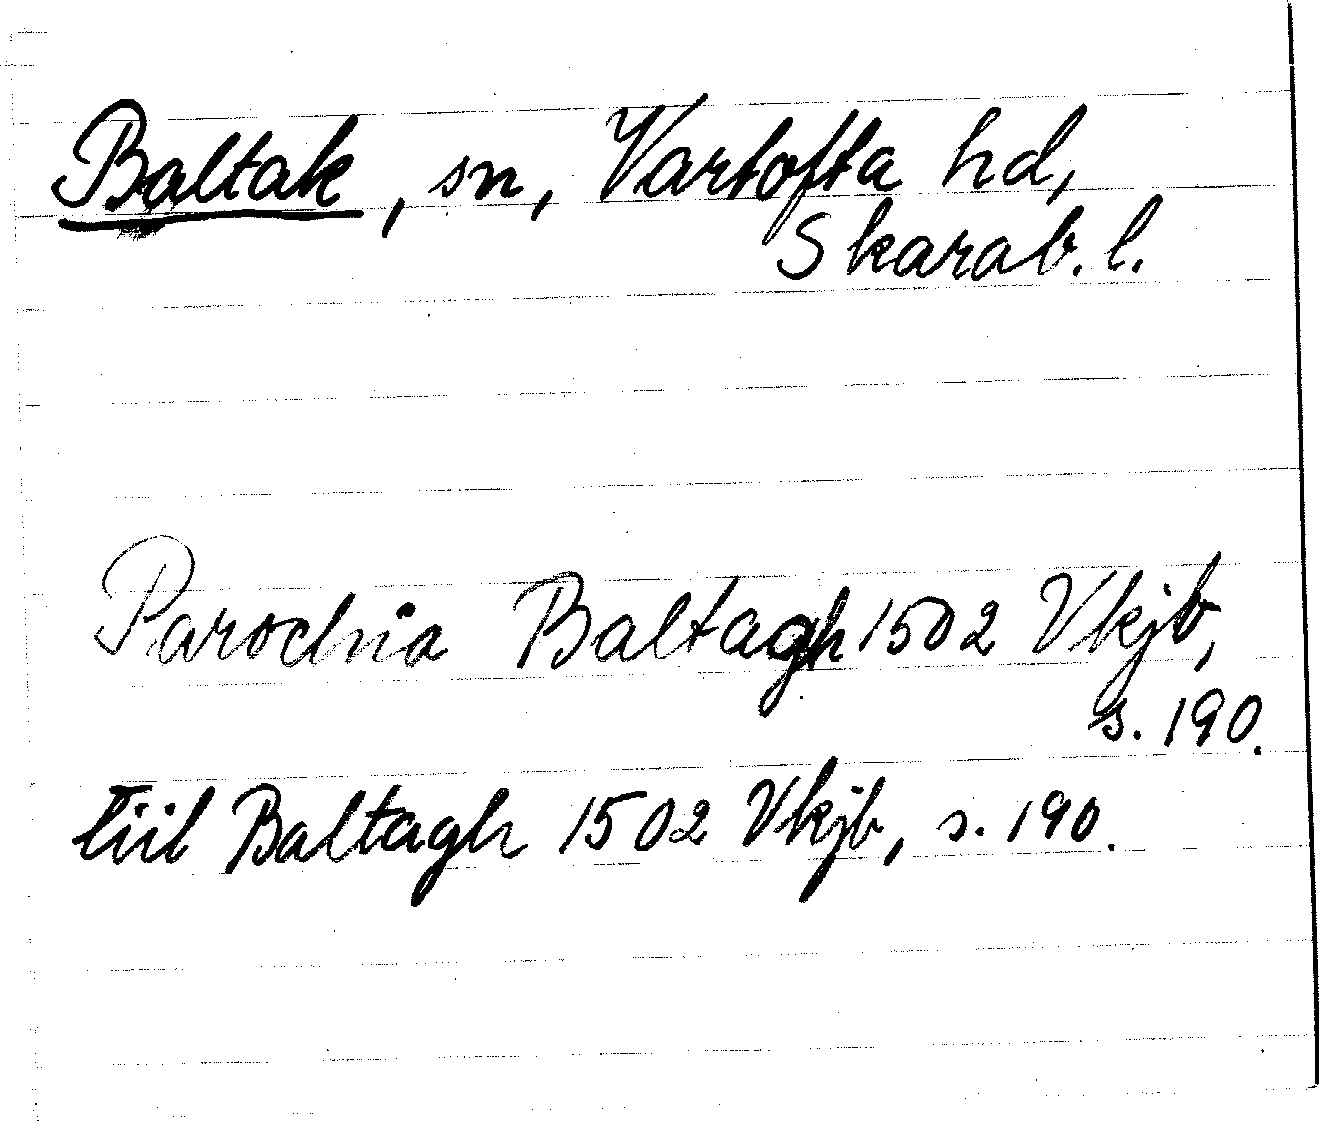 Baltak, sn, Vartofta hd,
Skarab. l.
Parochia Baltagh 1502 Vkjb,
s. 190.
tiil Baltagh 1502 Vkjb, s. 190.